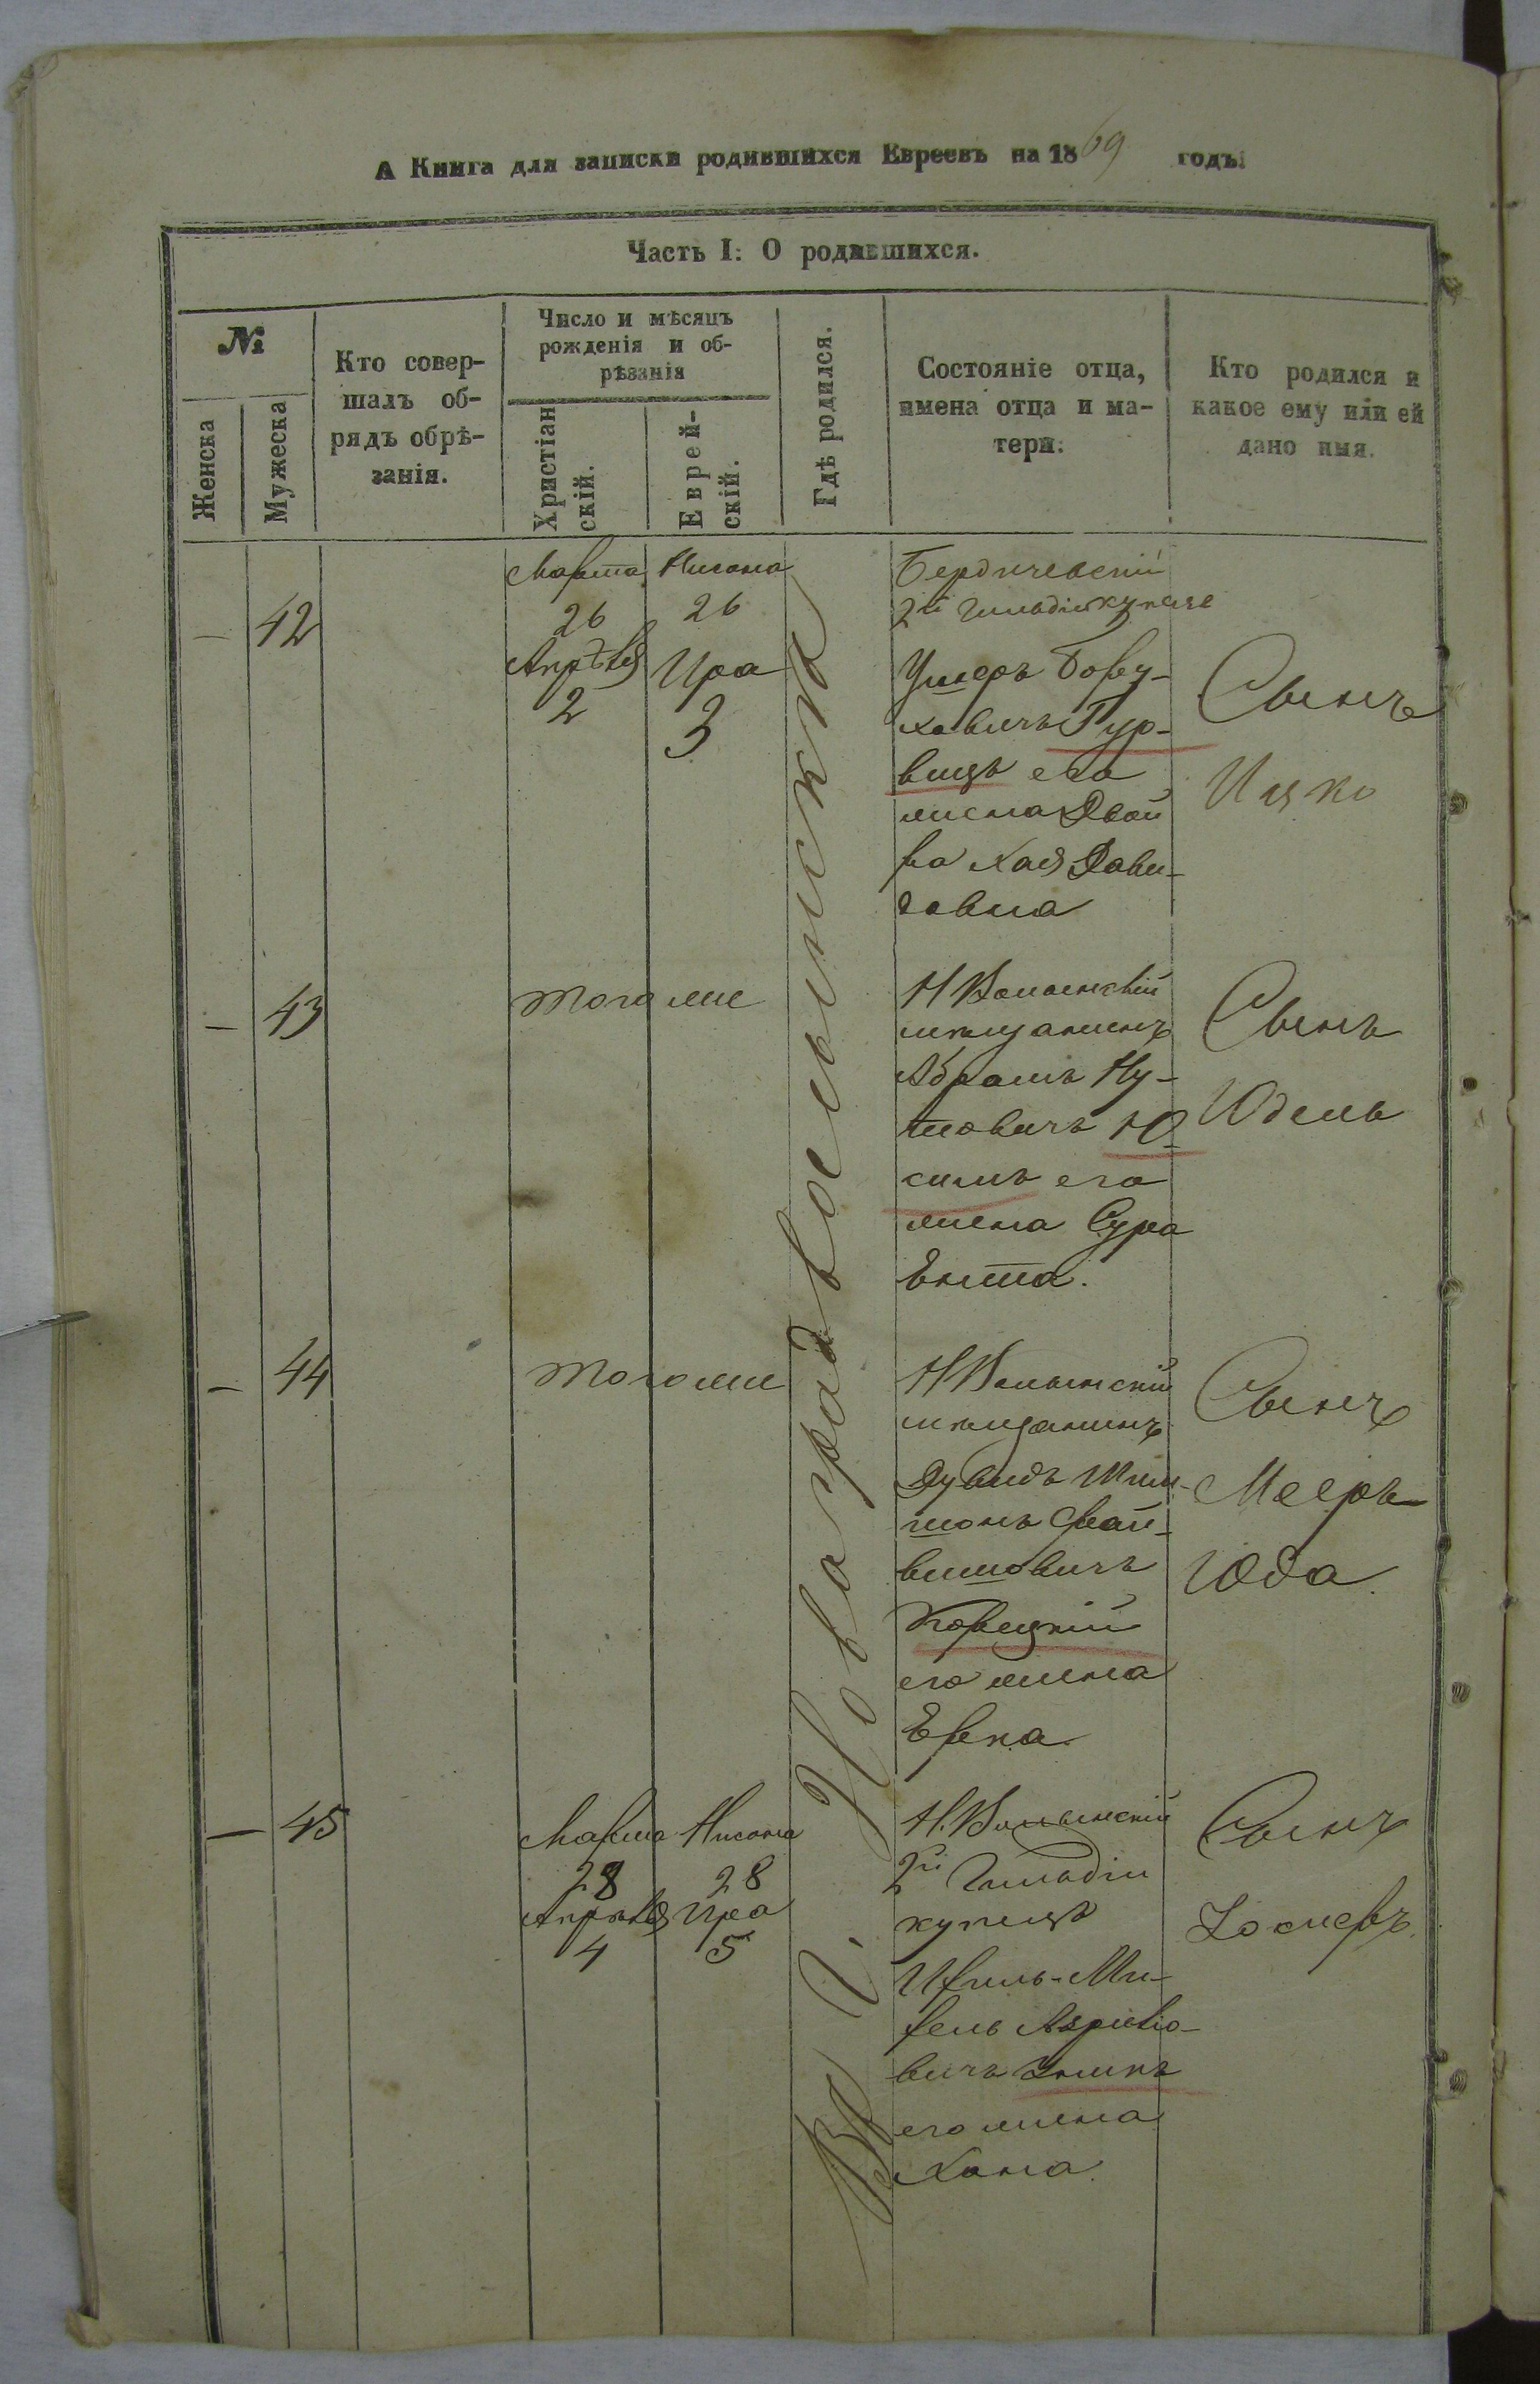 А Книга для записки родившихся Евреевъ на 1869 годъ:
Часть I: О родившихся.
№
Женска
Мужеска
Кто совер-
шалъ об-
рядъ обрѣ-
занія.
Число и мѣсяцъ
рожденія и об-
рѣзанія
Христіан
скій.
Еврей-
скій.
Гдѣ родился.
Состояніе отца,
имена отца и ма-
тери:
Кто родился и
какое ему или ей
дано имя.
Въ г. Новоградволынскѣ
— 42
Марта
26
Апрѣля
2
Нисана
26
Ира
3
Бердичевскій
2й Гильдіи купецъ
Ушеръ Бору-
ховичъ Гур-
вицъ его
жена Двой
ра Хая Дави-
довна
Сынъ
Ицко
— 43
тогоже
Н Волынскій
мѣщанинъ
Абрамъ Ну-
товичъ Ю-
симъ его
жена Сура
Ента.
Сынъ
Юдель
— 44
тогоже
Н Волынскій
мѣщанинъ
Дувидъ Шим-
шонъ Фай-
вишовичъ
Корецкій
его жена
Ерка
Сынъ
Мееръ
Юда.
— 45
Марта
28
Апрѣля
4
Нисана
28
Ира
5
Н. Волынскій
2й Гильдіи
купецъ
вичъ
его жена
Хана.
Сынъ